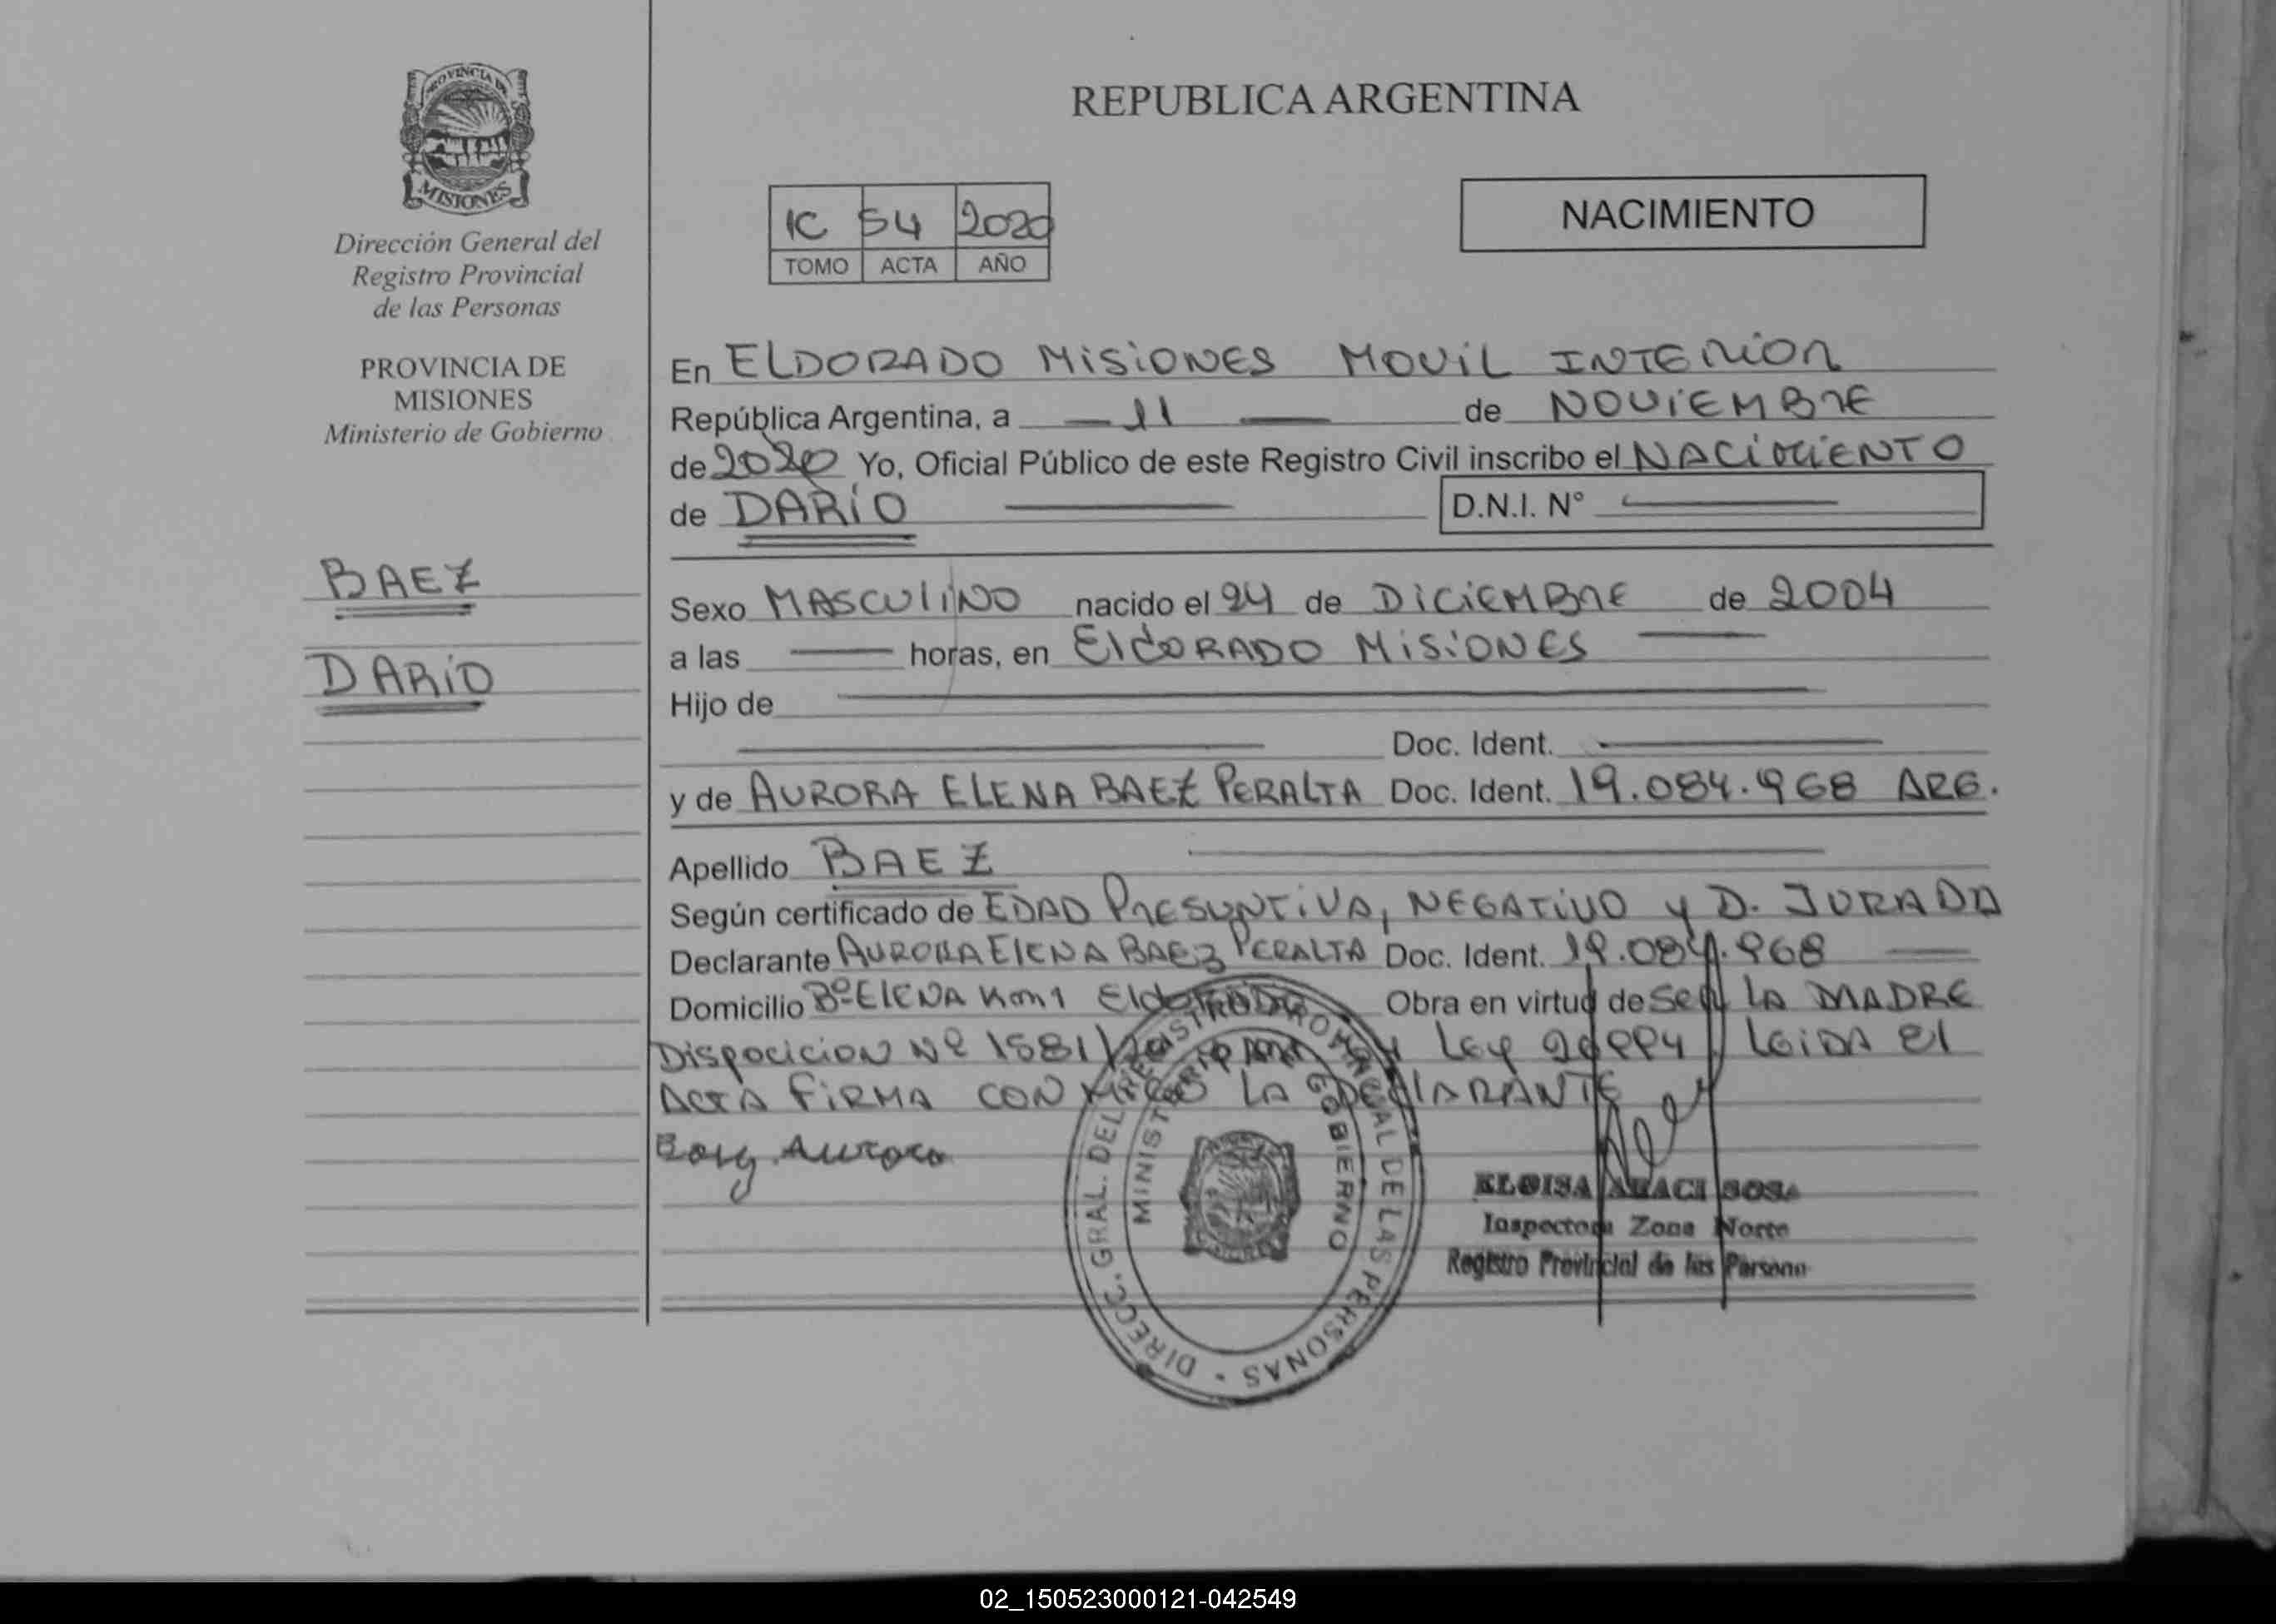 PROVINCIA DE
MISIONES
Dirección General del
Registro Provincial
de las Personas
PROVINCIA DE
MISIONES
Ministerio de Gobierno
BAEZ
DARIO
REPUBLICA ARGENTINA
1C 54 2020
TOMO ACTA AÑO
NACIMIENTO
En ELDORADO MISIONES MOVIL INTERIOR
República Argentina, a — 11 — de NOVIEMBRE
de 2020 Yo, Oficial Público de este Registro Civil inscribo el NACIMIENTO
de DARIO — D.N.I. N° —
Sexo MASCULINO nacido el 24 de DICIEMBRE de 2004
a las — horas, en ElDORADO MISIONES —
Hijo de —
— Doc. Ident. —
y de AURORA ELENA BAEZ PERALTA Doc. Ident. 19.084.968 ARG.
Apellido BAEZ —
Según certificado de EDAD PRESUNTIVA, NEGATIVO y D. JURADA
Declarante AURORA ElENA BAEZ PERALTA Doc. Ident. 19.084.968 —
Domicilio Bº ElENA Km 1 ElDORADO Obra en virtud de SER LA MADRE
DISPOCICION Nº 1581/ LEY LEIDA El
ACTA FIRMA CON MIGO LA DEClARANTE
Aurora
DIRECC. GRAL. DEL REGISTRO PROVINCIAL DE LAS PERSONAS
MINISTERIO DE GOBIERNO
ELOISA ARACI SOSA
Inspectora Zona Norte
Registro Provincial de las Persona
02_150523000121-042549